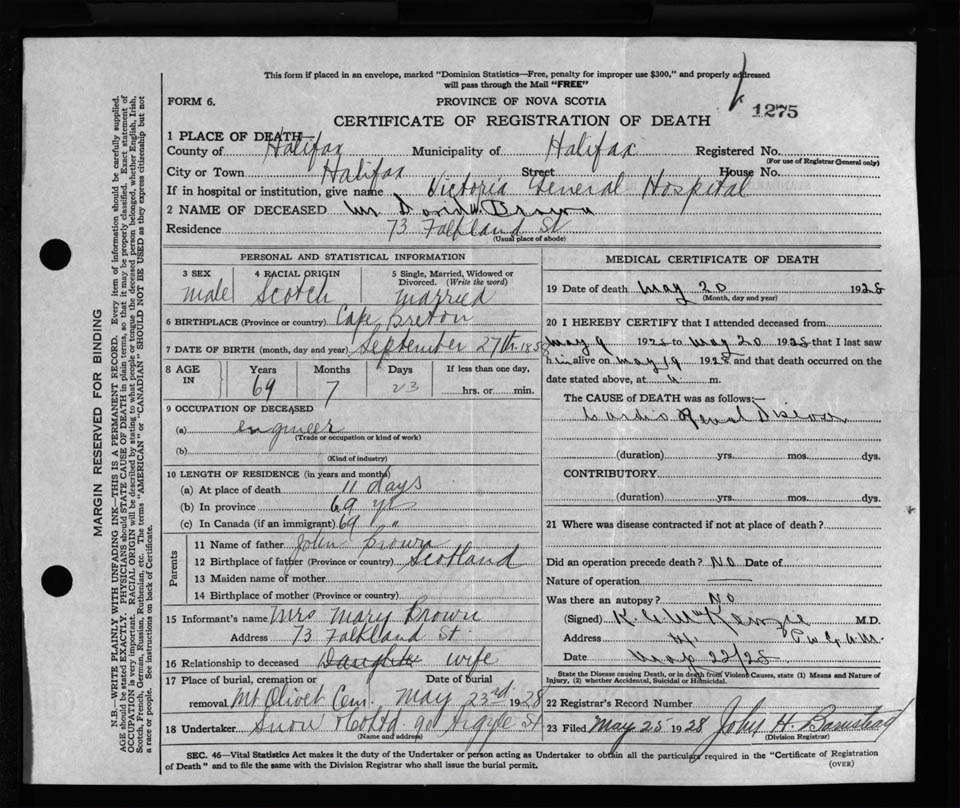 This form if placed in an envelope, marked "Dominion Statistics—Free, penalty for improper use $300," and properly addressed
will pass through the Mail "FREE"
FORM 6.
PROVINCE OF NOVA SCOTIA
CERTIFICATE OF REGISTRATION OF DEATH
1275
1 PLACE OF DEATH—
County of Halifax Municipality of Halifax Registered No.
(For use of Registrar General only)
City or Town Halifax Street House No.
If in hospital or institution, give name Victoria General Hospital
2 NAME OF DECEASED Mr David Brown
Residence 73 Falkland St
(Usual place of abode)
PERSONAL AND STATISTICAL INFORMATION
3 SEX male
4 RACIAL ORIGIN Scotch
5 Single, Married, Widowed or Divorced. (Write the word) married
6 BIRTHPLACE (Province or country) Cape Breton
7 DATE OF BIRTH (month, day and year) September 27th 1858
8 AGE IN Years 69 Months 7 Days 23 If less than one day, hrs. or min.
9 OCCUPATION OF DECEASED
(a) engineer
(Trade or occupation or kind of work)
(b)
(Kind of industry)
10 LENGTH OF RESIDENCE (in years and months)
(a) At place of death 11 days
(b) In province 69 yr
(c) In Canada (if an immigrant) 69 "
Parents
11 Name of father John Brown
12 Birthplace of father (Province or country) Scotland
13 Maiden name of mother
14 Birthplace of mother (Province or country)
15 Informant's name Mrs Mary Brown
Address 73 Falkland St.
16 Relationship to deceased Daughter wife
17 Place of burial, cremation or Date of burial
removal Mt Olivet Cem. May 23rd 1928
18 Undertaker Snow & Co Ltd 90 Argyle St
(Name and address)
MEDICAL CERTIFICATE OF DEATH
19 Date of death May 20 1928
(Month, day and year)
20 I HEREBY CERTIFY that I attended deceased from
May 9 1928 to May 20 1928 that I last saw
him alive on May 19 1928 and that death occurred on the
date stated above, at m.
The CAUSE OF DEATH was as follows:—
Cardio Renal Disease
(duration) yrs. mos. dys.
CONTRIBUTORY
(duration) yrs. mos. dys.
21 Where was disease contracted if not at place of death?
Did an operation precede death? No Date of
Nature of operation
Was there an autopsy? No
(Signed) McKenzie M.D.
Address
Date May 22/28
State the Disease causing Death, or in death from Violent Causes, state (1) Means and Nature of
Injury, (2) whether Accidental, Suicidal or Homicidal.
22 Registrar's Record Number
23 Filed May 25 1928 John H. Barnstead
(Division Registrar)
SEC. 46—Vital Statistics Act makes it the duty of the Undertaker or person acting as Undertaker to obtain all the particulars required in the "Certificate of Registration
of Death" and to file the same with the Division Registrar who shall issue the burial permit.
(OVER)
MARGIN RESERVED FOR BINDING
N.B.—WRITE PLAINLY WITH UNFADING INK—THIS IS A PERMANENT RECORD. Every item of information should be carefully supplied.
AGE should be stated EXACTLY. PHYSICIANS should STATE CAUSE OF DEATH in plain terms, so that it may be properly classified. Exact statement of
OCCUPATION is very important. RACIAL ORIGIN will be described by stating to what people or tongue the deceased person belonged, whether English, Irish,
Scotch, French, German, Russian, Ruthenian, etc. The terms "AMERICAN" or "CANADIAN" SHOULD NOT BE USED as they express citizenship but not
a race or people. See instructions on back of Certificate.